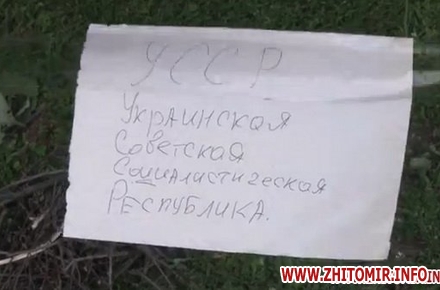 УССР
Украинская
Советская
Социалистическая
Республика.
WWW.ZHITOMIR.INFO